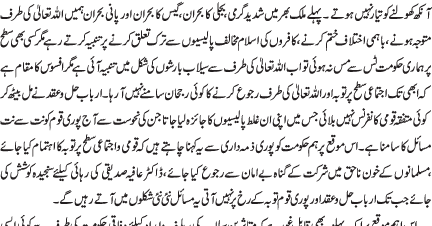 آنکھ کھولنے کو تیار نہیں ہوتے ۔ پہلے ملک بھر میں شدید گرمی بجلی کا بحران، گیس کا بحران اور پانی بحران ہمیں اللہ تعالیٰ کی طرف
متوجہ ہونے، باہمی اختلاف ختم کرنے، کافروں کی اسلام مخالف پالیسیوں سے ترک تعلق کرنے پر تنبیہ کرتے رہے مگر کسی بھی سطح
پر ہماری حکومت ٹس سے مس نہ ہوئی تو اب اللہ تعالیٰ کی طرف سے سیلاب بارشوں کی شکل میں تنبیہ آئی ہے مگر افسوس کا مقام ہے
کہ ابھی تک اجتماعی سطح پر توبہ اور اللہ تعالیٰ کی طرف رجوع کرنے کا کوئی رجحان سامنے نہیں آ رہا۔ ارباب حل و عقد نے مل بیٹھ کر
کوئی متفقہ قومی کانفرنس نہیں بلائی جس میں اپنی ان غلط پالیسیوں کا جائزہ لیا جاتا جن کی نحوست سے آج پوری قوم کو نت نت
مسائل کا سامنا ہے۔ اس موقع پر ہم حکومت کو پوری ذمہ داری سے یہ کہنا چاہتے ہیں کہ قومی و اجتماعی سطح پر توبہ کا اہتمام کیا جائے
مسلمانوں کے خون ناحق میں شرکت کے گناہ بے امان سے رجوع کیا جائے، ڈاکٹر عافیہ صدیقی کی رہائی کیلئے سنجیدہ کوشش کی
جائے جب تک ارباب حل و عقد اور پوری قوم توبہ کے رخ پر نہیں آتی یہ مسائل نئی نئی شکلوں میں آتے رہیں گے۔